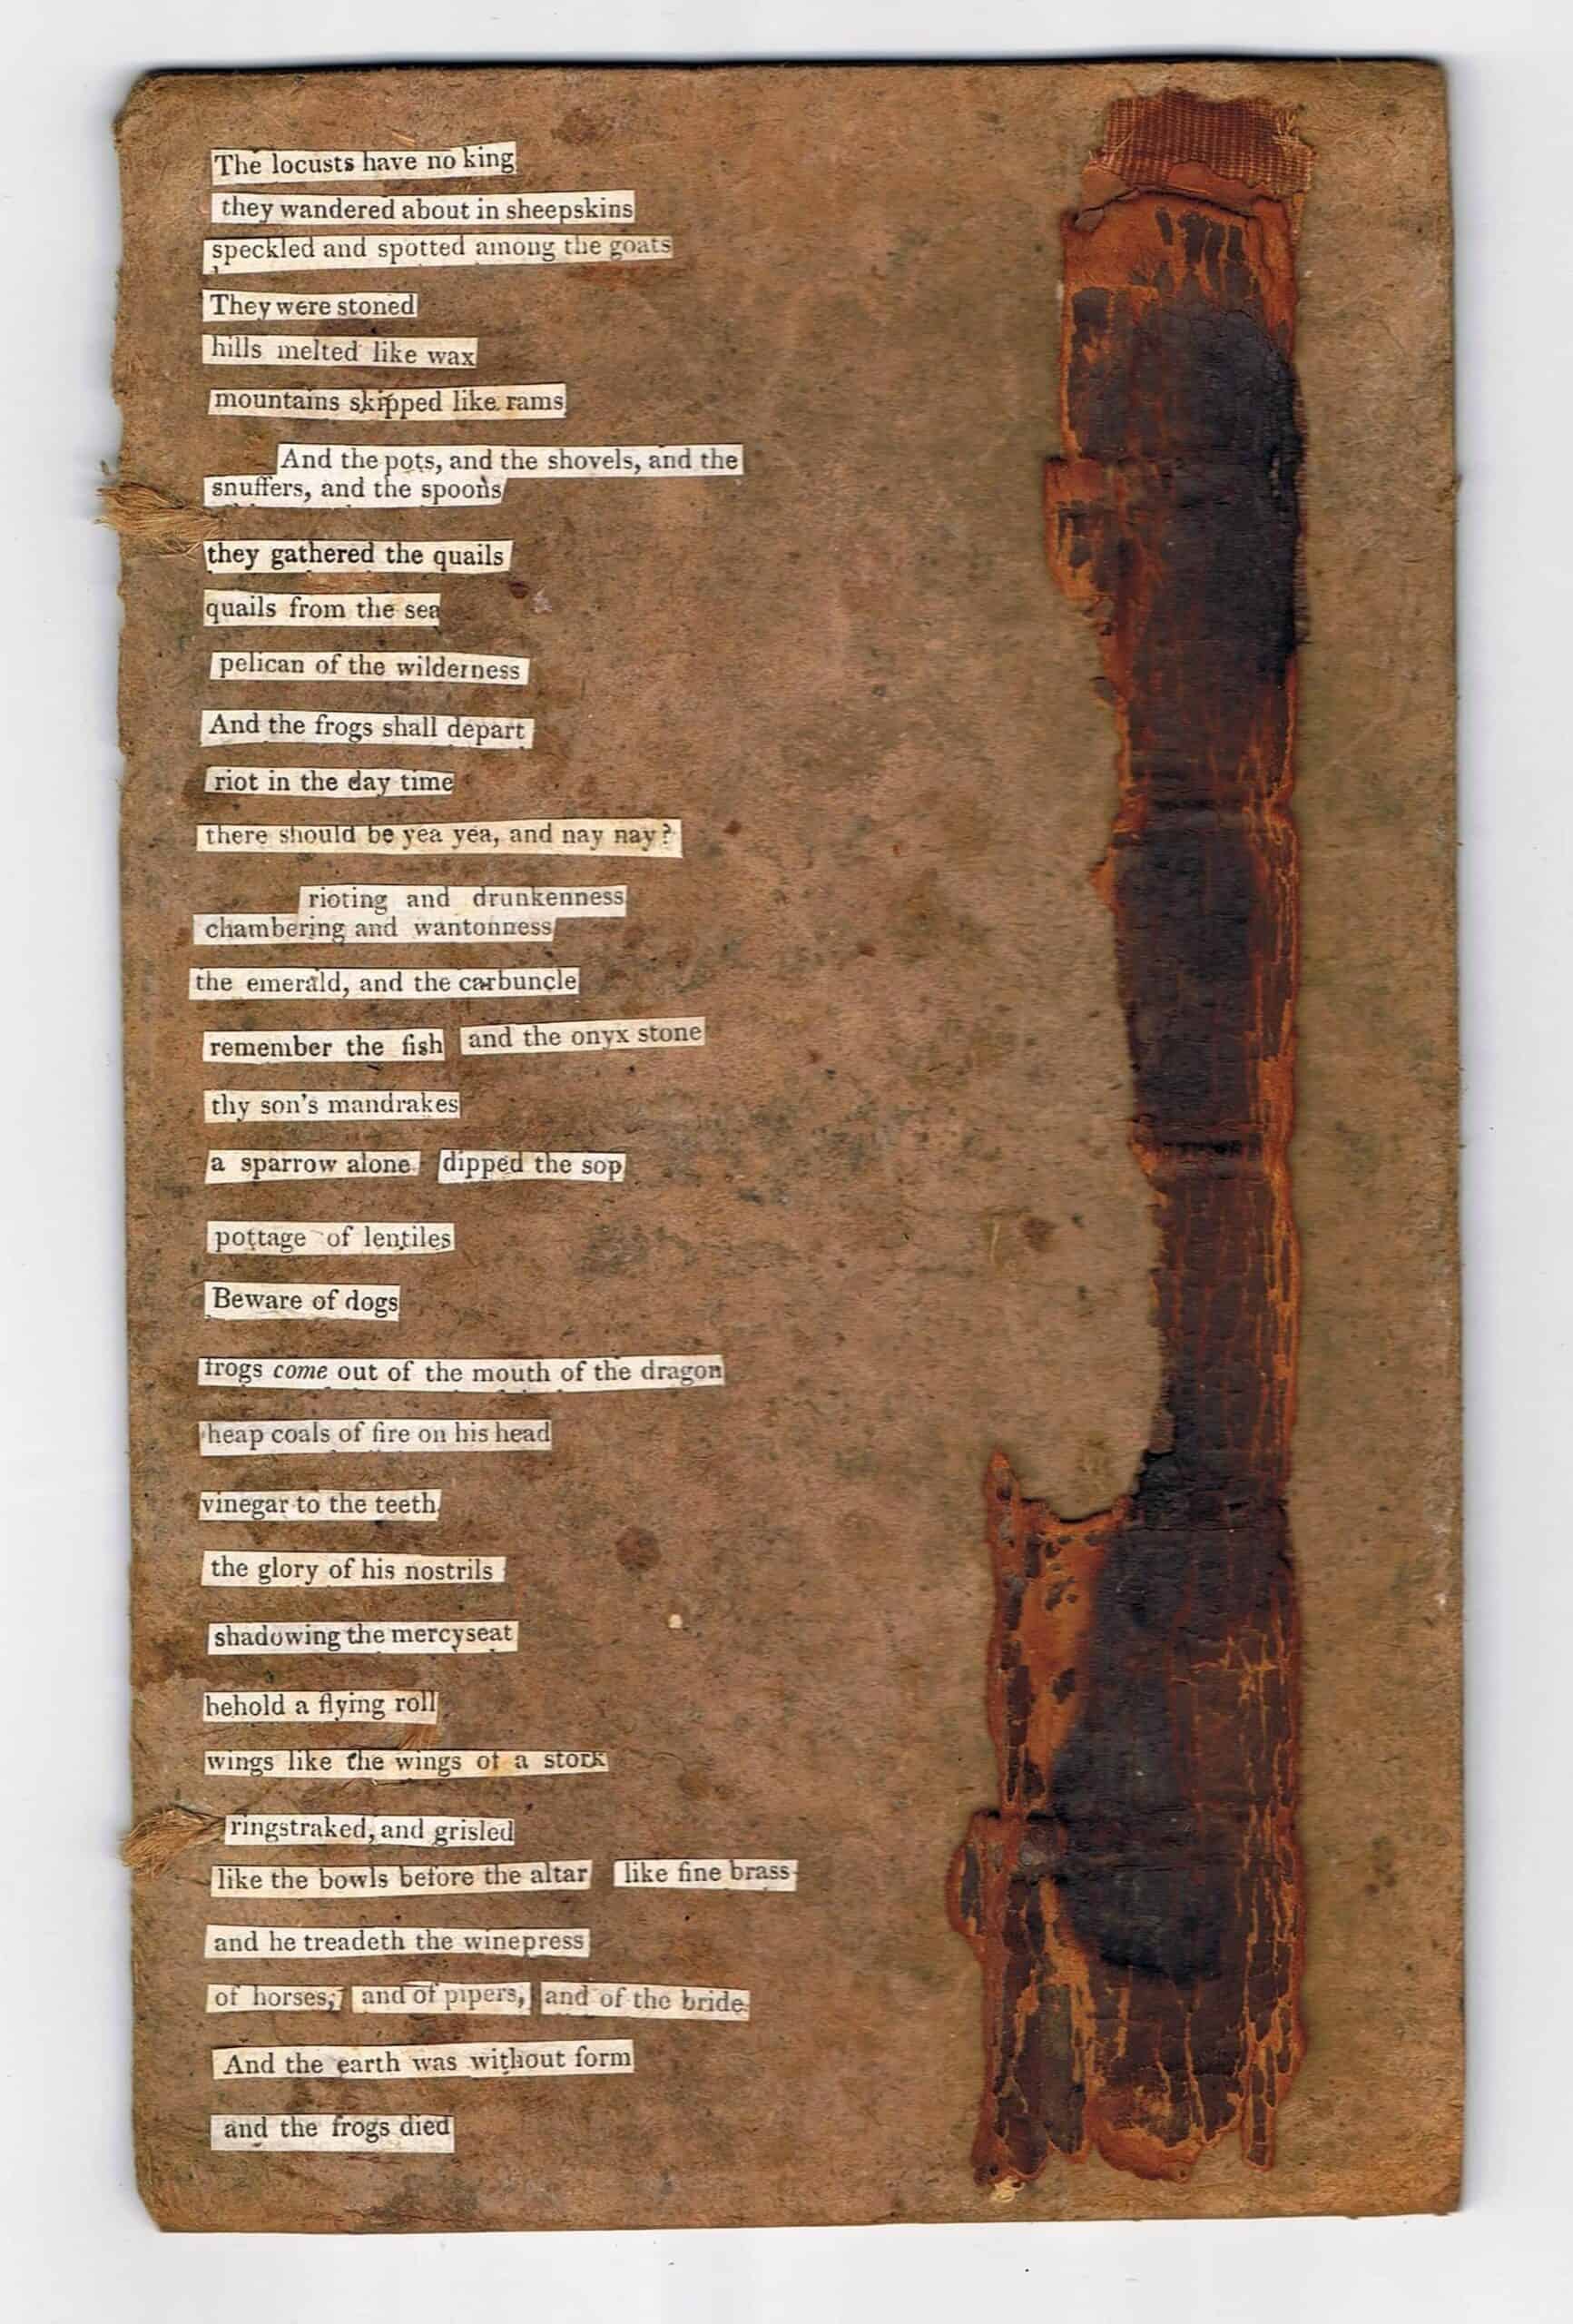 The locusts have no king
they wandered about in sheepskins
speckled and spotted among the goats
They were stoned
hills melted like wax
mountains skipped like rams
And the pots, and the shovels, and the
snuffers, and the spoons
they gathered the quails
quails from the sea
pelican of the wilderness
And the frogs shall depart
riot in the day time
there should be yea yea, and nay nay?
rioting and drunkenness
chambering and wantonness
the emerald, and the carbuncle
remember the fish and the onyx stone
thy son's mandrakes
a sparrow alone dipped the sop
pottage of lentiles
Beware of dogs
frogs come out of the mouth of the dragon
heap coals of fire on his head
vinegar to the teeth
the glory of his nostrils
shadowing the mercyseat
behold a flying roll
wings like the wings of a stork
ringstraked, and grisled
like the bowls before the altar like fine brass
and he treadeth the winepress
of horses; and of pipers, and of the bride
And the earth was without form
and the frogs died